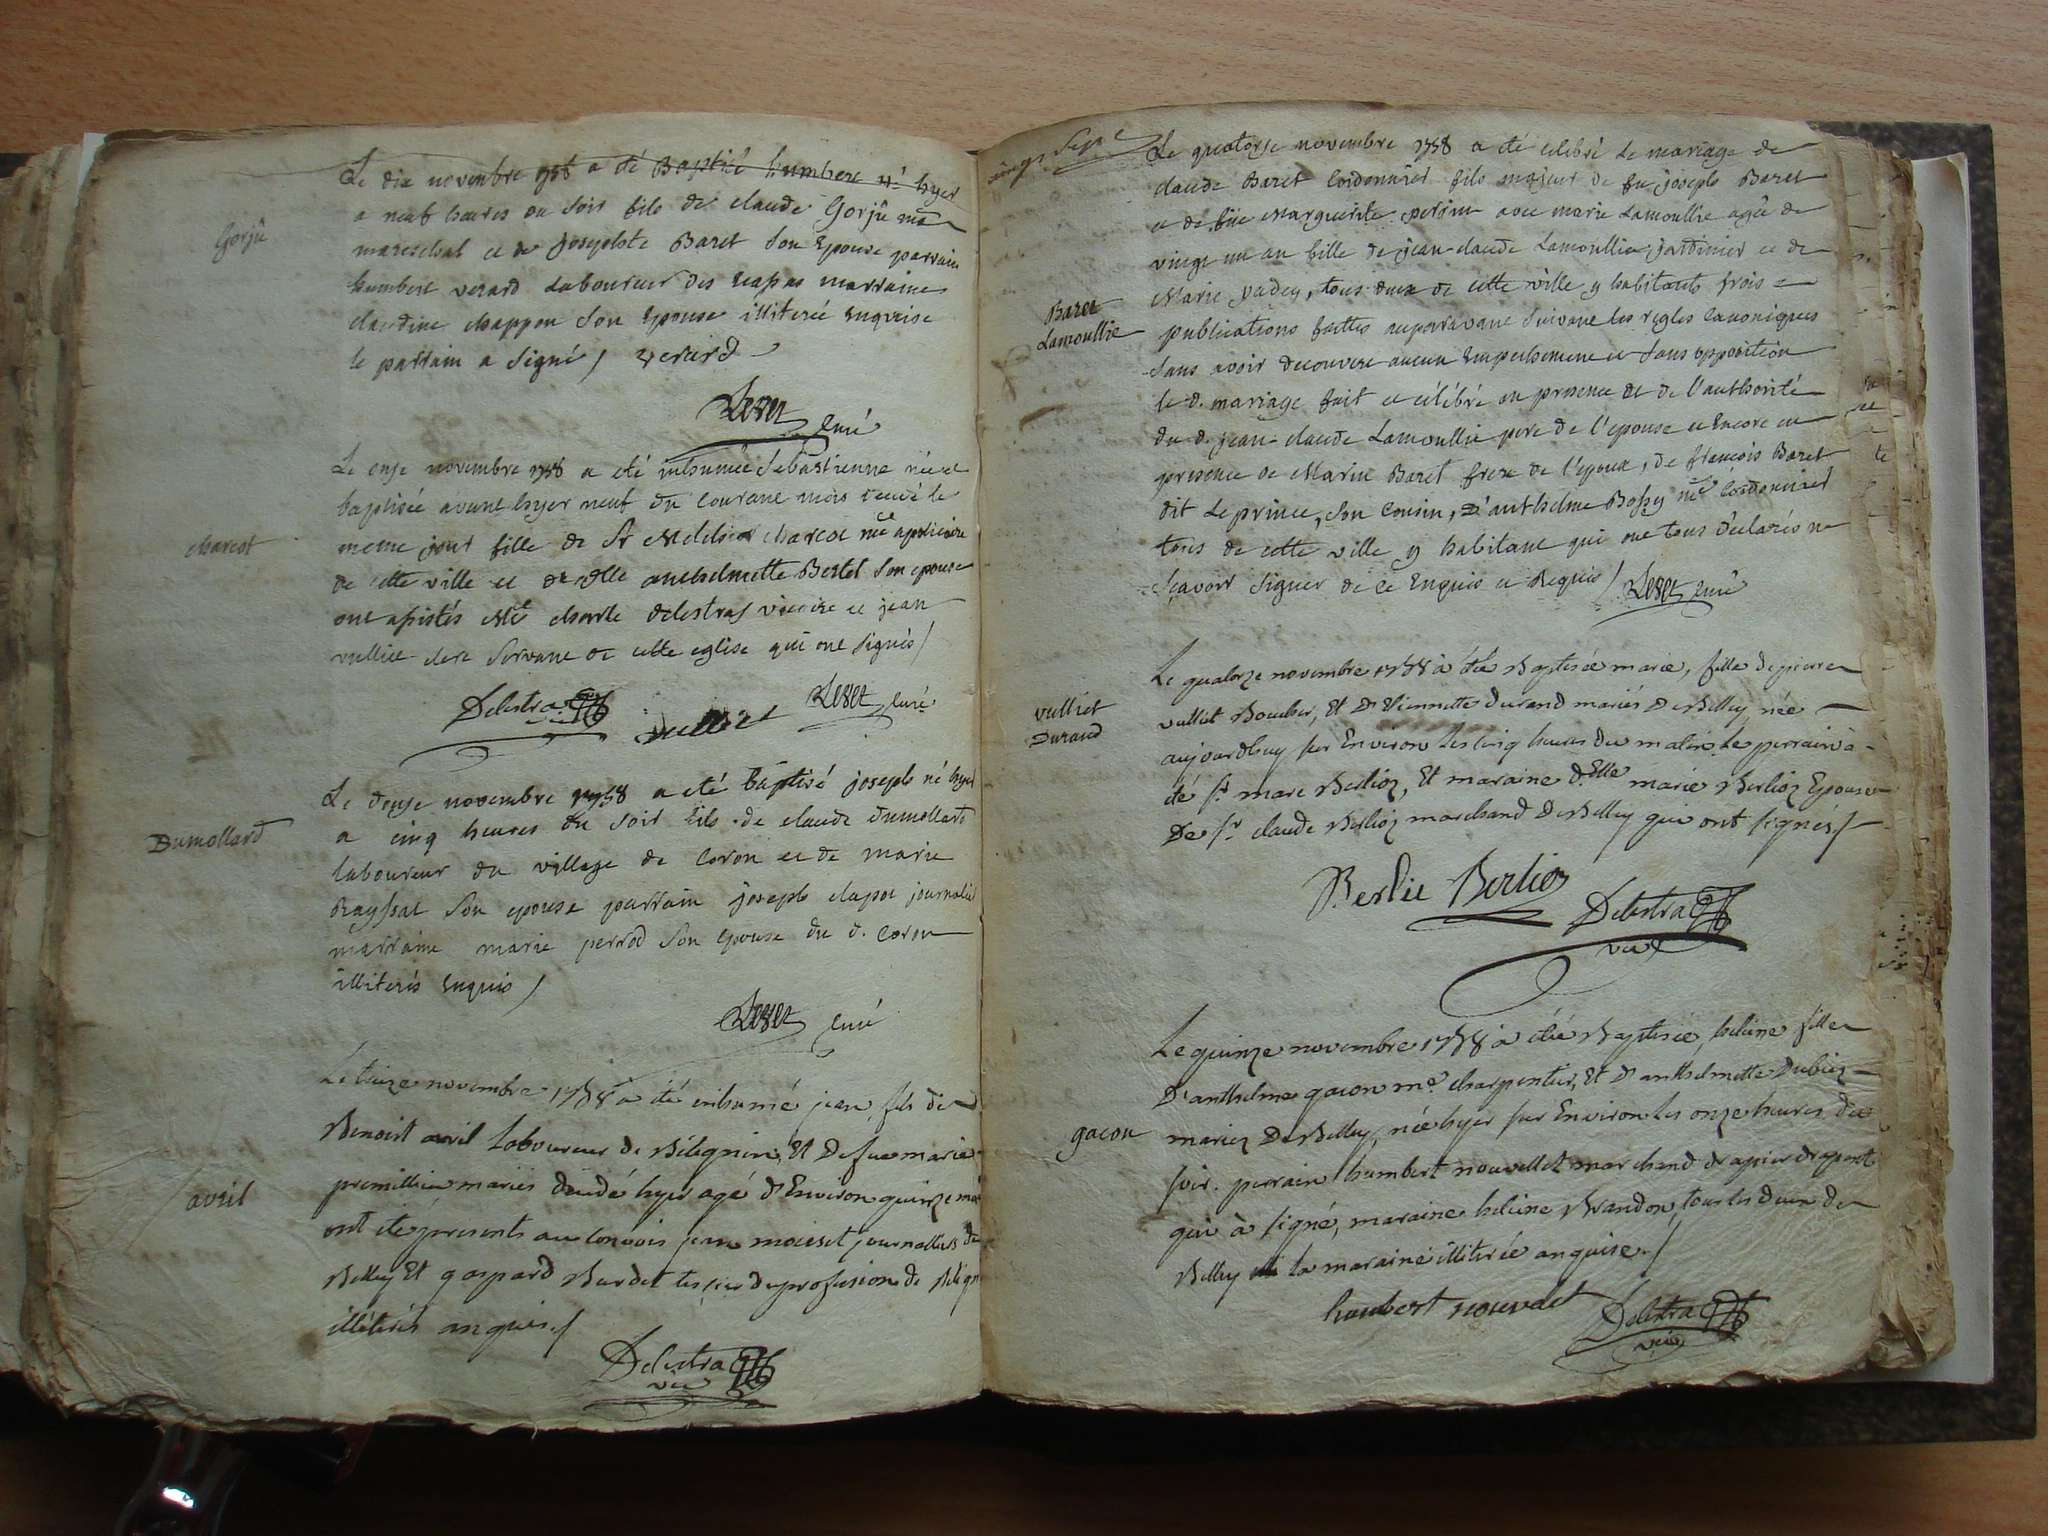 Gorjû
Le dix novembre 1758 a été Baptisé humbert né hyer
a neuf heures du soir fils de claude Gorjû ma
mareschal et de josephte Baret son Epouse parrain
humbert verard Laboureur des marraine
claudine chappon son Epouse illiterée Enquise
le parrain a signé / verard
curé
charcot
Le onze novembre 1758 a été inhumée Sebastienne née et
baptisée avant hyer neuf du courant mois decedé le
meme jour fille de Sr Melchior charcot me apoticaire
de cette ville et de dlle anthelmette Bertet son epouse
ont assistés Mre charle delestraz vicaire et jean
vulliet clerc servant de cette eglise qui ont signés /
Delestraz vulliet curé
Dumollard
Le douze novembre 1758 a été baptisé joseph né hyer
a cinq heures du soir fils de claude dumollard
laboureur du village de Coron et de marie
Rayssat son epouse parrain joseph clapot journalier
marraine marie perrod son epouse du d. Coron
illiterés Enquis /
curé
avril
Le treize novembre 1758 à été inhumé jean, fils de
Benoist avril Laboureur de Bélignin, Et De fue marie
premillieu mariés décédé hyer agé d'Environ quinze moi
ont été présents au convois jean moiset journallier de
Belley Et gaspard Burdet de profession de
illétérés anquis./
Delestraz
vic
vingt sept
Baret
Lamoullie
Le quatorze novembre 1758 a été celebré le mariage de
claude Baret Cordonnier fils majeur de fu joseph Baret
et de fue Marguerite perrin avec marie Lamoullie agée de
vingt un an fille de jean-claude Lamoullie jardinier et de
Marie padey, tous deux de cette ville y habitants trois
publications faittes auparavant suivant les regles canoniques
sans avoir decouvert aucun Empechement et sans opposition
le d. mariage fait et célébré en presence et de l'authorité
du d. jean-claude Lamoullie pere de l'epouse et Encore en
presence de Marin Baret frere de l'epoux, de françois Baret
dit Le prince, son Cousin, d'anthelme Bossy me cordonnier
tous de cette ville y habitant qui ont tous declarés ne
sçavoir signer de ce Enquis et Requis / curé
vulliet
Durand
Le quatorze novembre 1758 à été Baptisée marie, fille de pierre
vulliet Boucher, Et d'Etiennette durand mariés De Belley née
aujourdhuy sur Environ les cinq heures du matin. Le perrain à
été Sr. marc Berlioz, Et maraine dElle marie Berlioz Epouse
De Sr. claude Berlioz marchand De Belley qui ont signés /
Berlie Berlioz
Delestraz
vic
gacon
Le quinze novembre 1758 à été Baptisée, heleine fille
D'anthelme gacon me. charpentier, Et d'anthelmette Dubiez
mariez De Belley, née hyer sur Environ les onze heures du
soir. perrain humbert nouvellet marchand drapier drapant
qui à signé, maraine heleine Brandon, tous les deux de
Belley la maraine illiterée anquise. /
humbert nouvelet Delestraz
vic